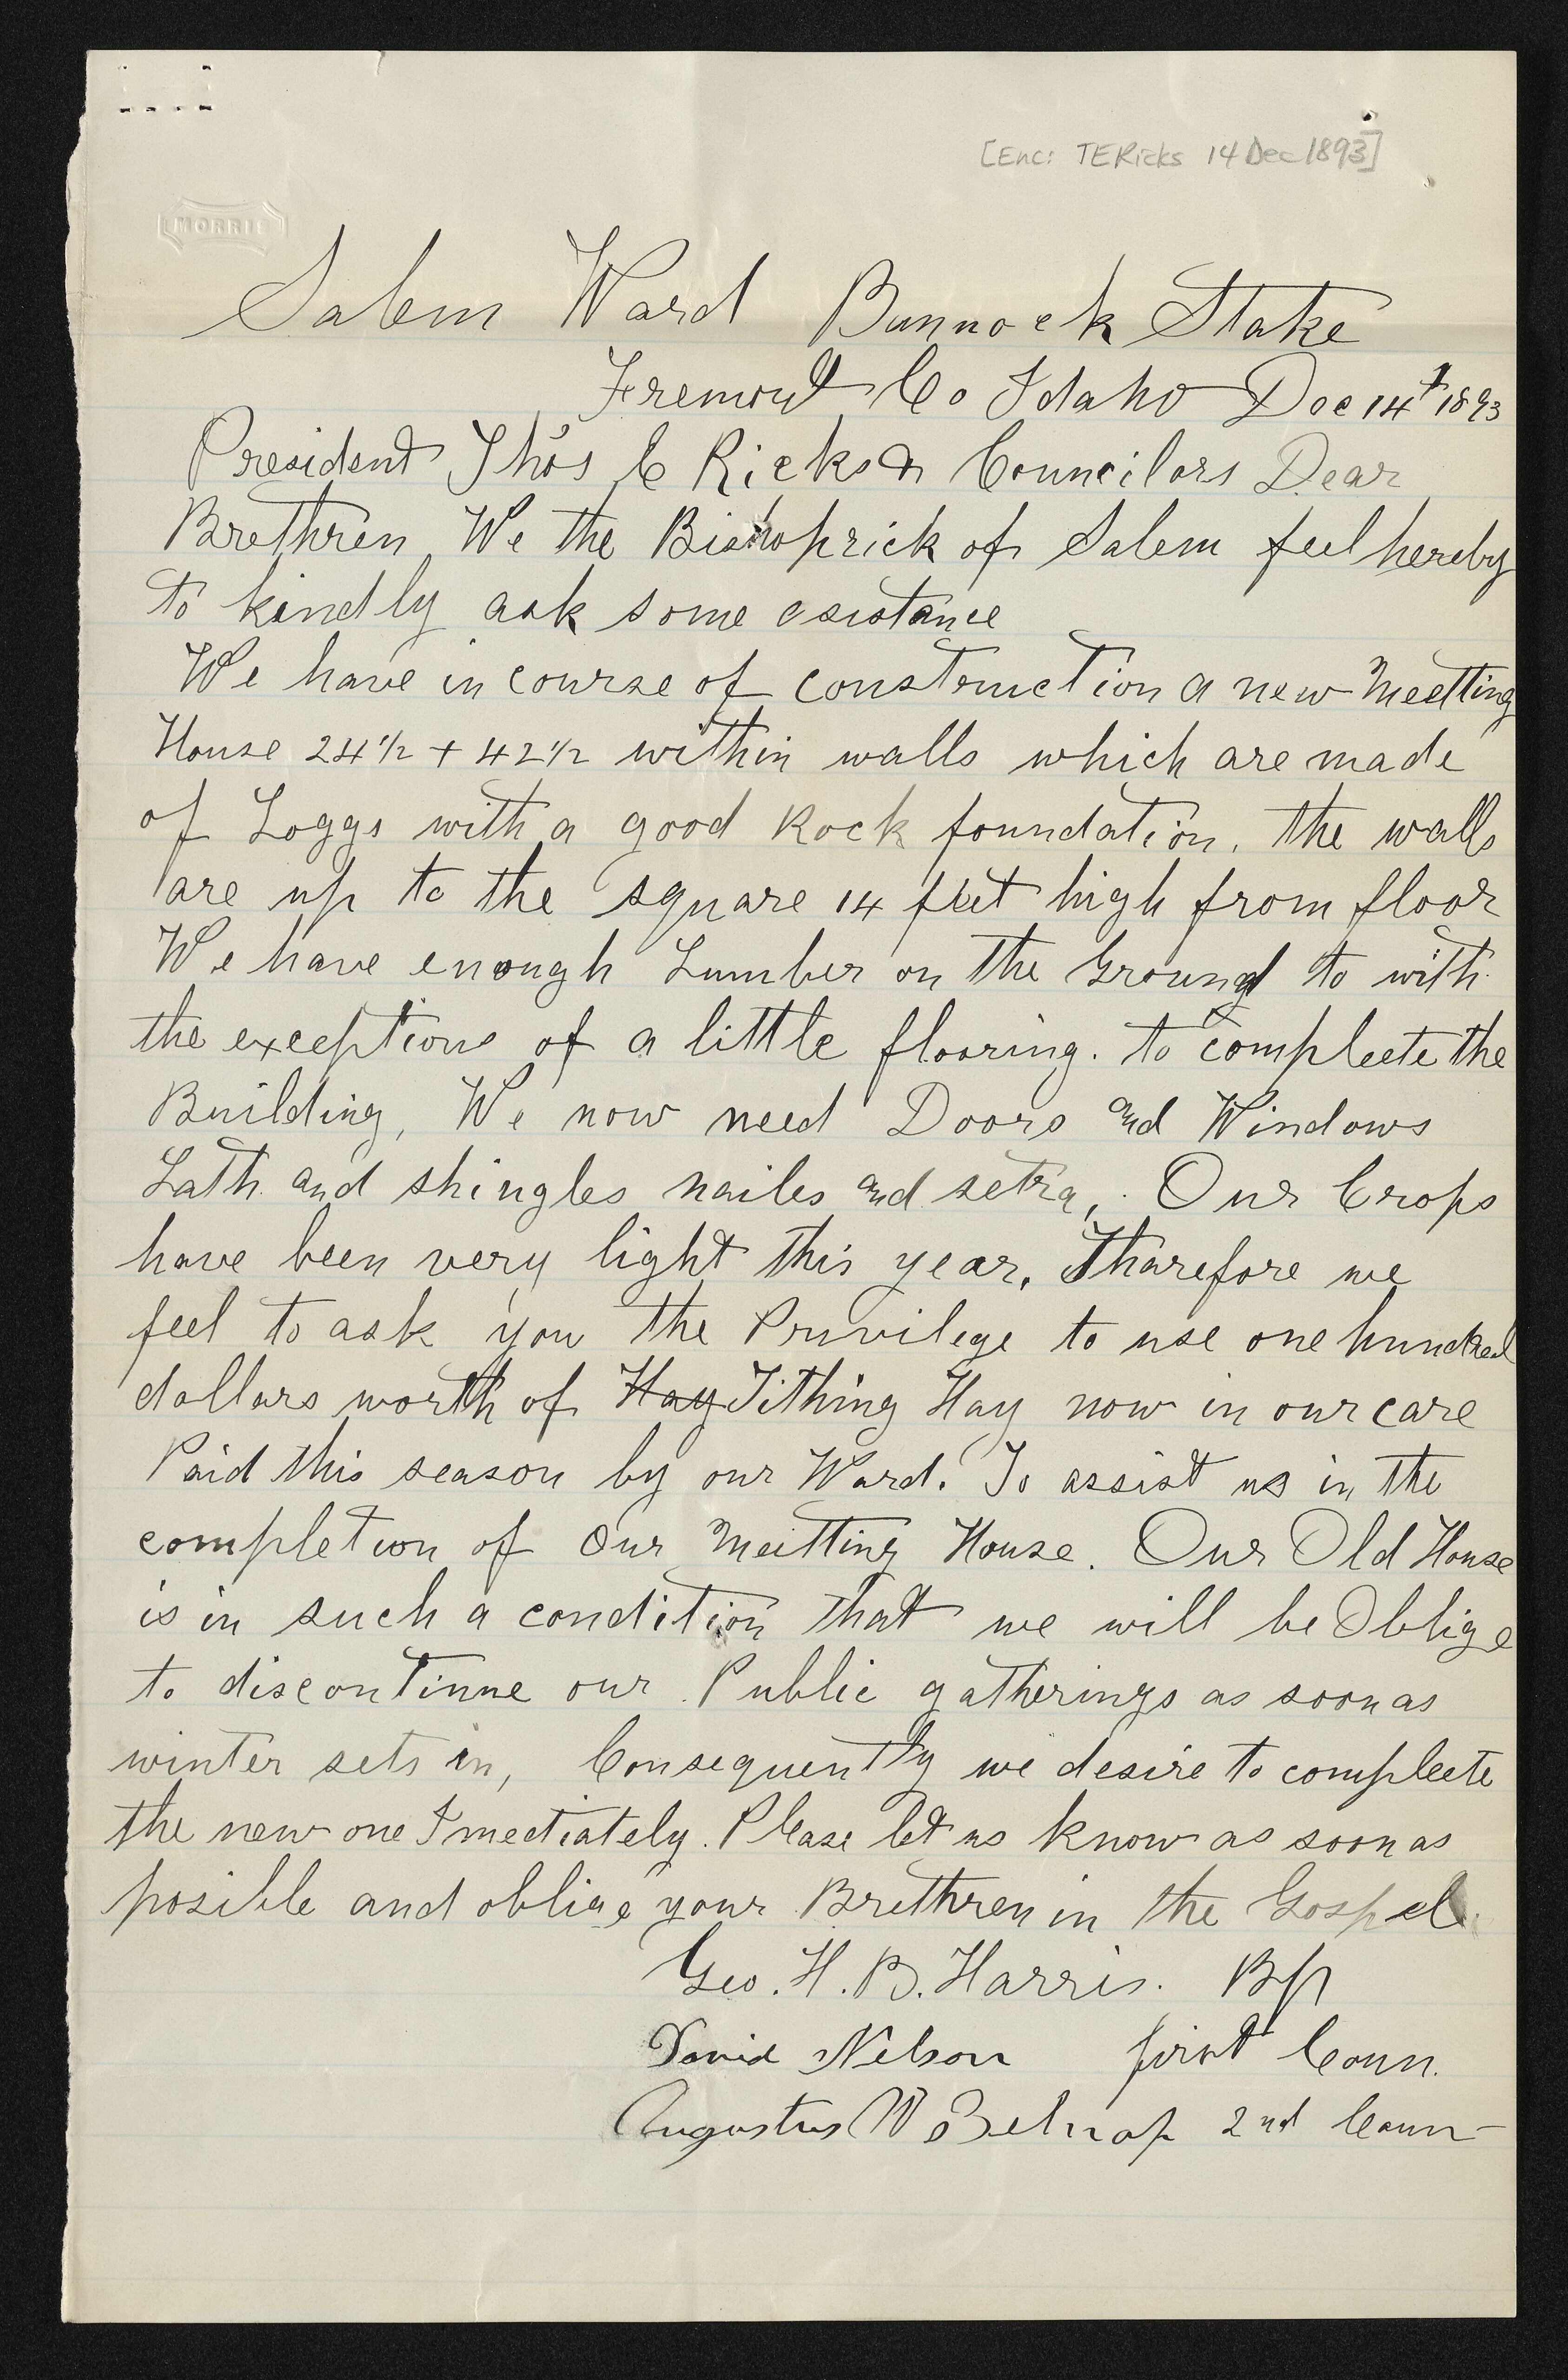 [Enc: TERicks 14 Dec 1893]
MORRIS
Salem Ward Bannock Stake
Fremont Co Idaho Dec 14th 1893
President Thos E Ricks & Councilors Dear
Brethren We the Bishoprick of Salem feel hereby
to kindly ask some asistance
We have in course of construction a new Meetting
House 24 1/2 + 42 1/2 within walls which are made
of Loggs with a good Rock foundation, the walls
are up to the square 14 feet high from floor
We have enough Lumber on the Ground to with
the exceptions of a little flooring. to compleete the
Building, We now need Doors and Windows
Lath and shingles nailes and setra, . Our Crops
have been very light this year. Tharefore we
feel to ask you the Privilege to use one hundred
dollars worth of Hay Tithing Hay now in our care
Paid this season by our Ward. To assist us in the
completion of Our Meetting House. Our Old House
is in such a condition that we will be Oblige
to discontinue our Public gatherings as soon as
winter sets in, Consequently we desire to compleete
the new one Imediately. Please let us know as soon as
posible and oblige your Brethren in the Gospel
Geo. H. B. Harris. Bp
David Nelson first Coun.
Augustus W Belnap 2nd Coun